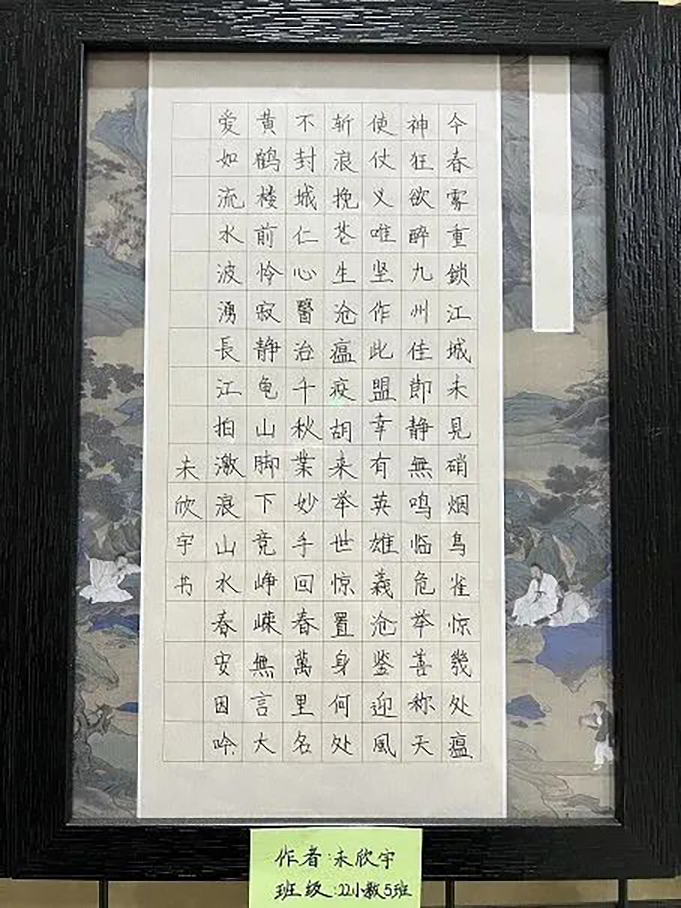 今春雾重鎖江城未見硝烟鳥雀惊幾处瘟
神狂欲醉九州佳節静無鸣临危举善称天
使仗义唯坚作此盟幸有英雄義沧鉴迎風
斩浪挽苍生沧瘟疫胡来举世惊置身何处
不封城仁心醫治千秋業妙手回春萬里名
黄鹤楼前怜寂静龟山脚下竞峥嵘無言大
爱如流水波湧長江拍激浪山水春安因吟
未欣宇书
作者:未欣宇
班级:22小教5班